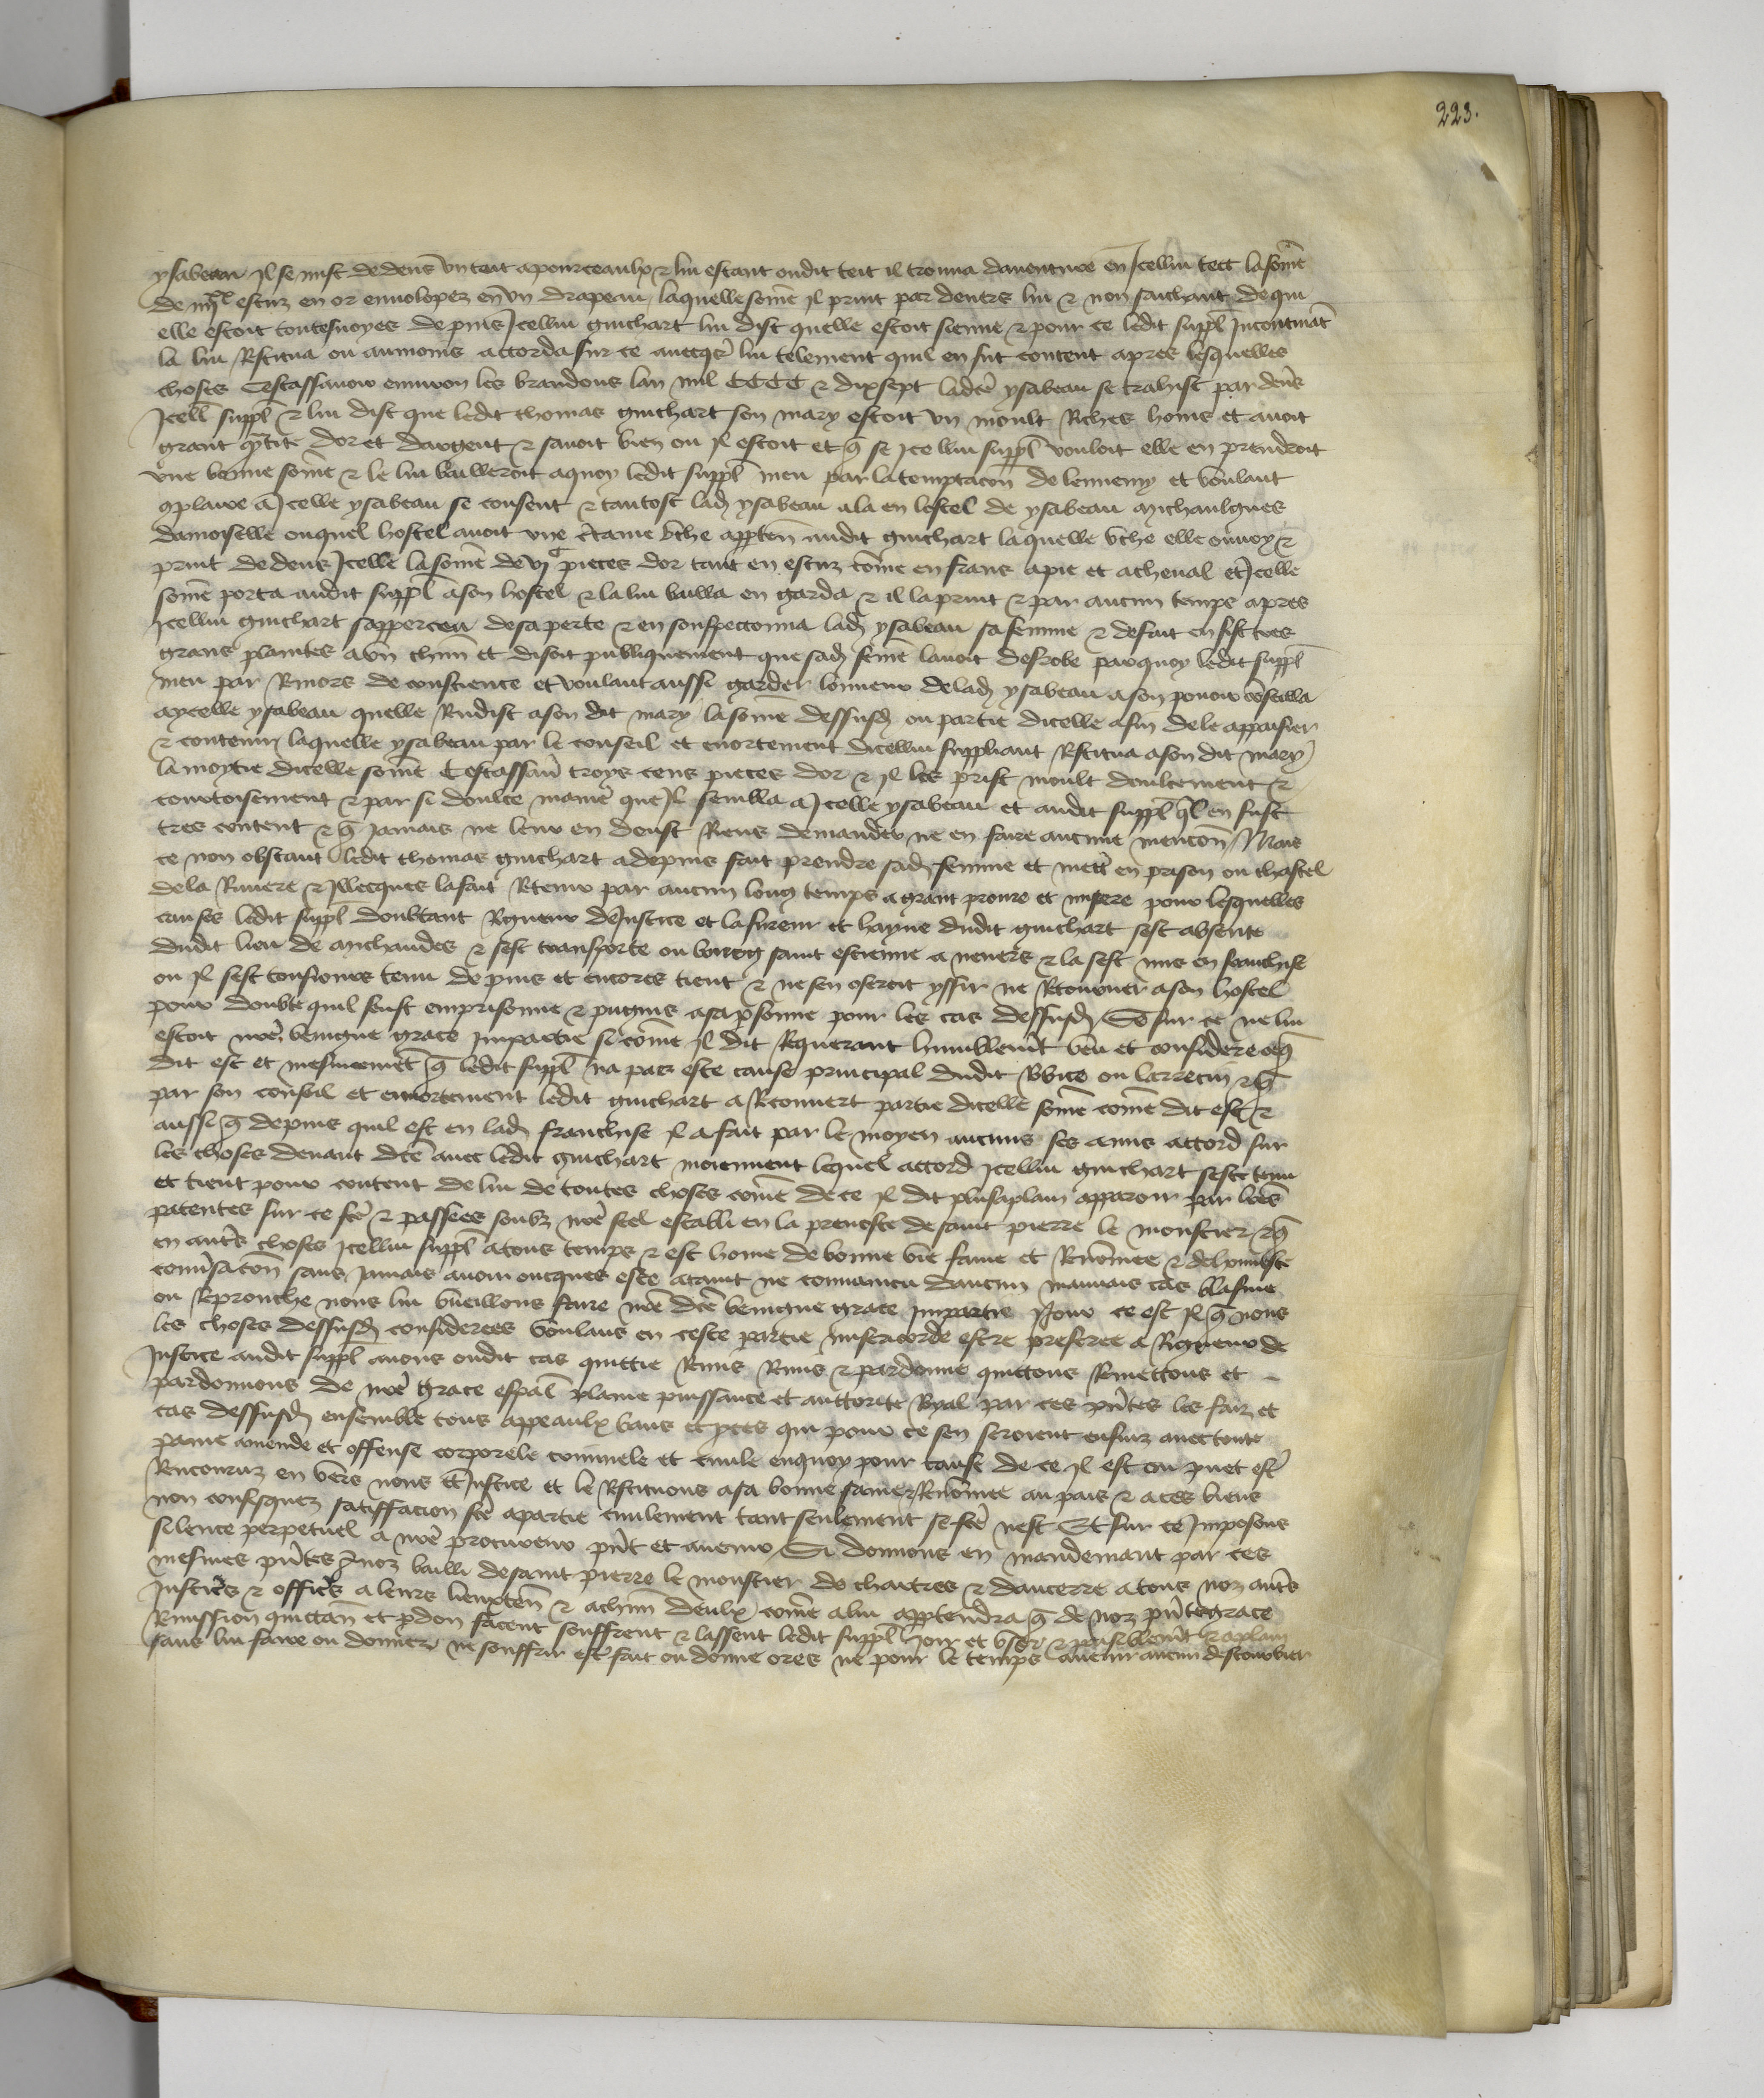 223.
ysabeau Il se mist dedens vn teit apourceaulx & lui estant oudit teit il trouua dauenture en Icellui tect la som̄e
de escuz en or enuolopez en vn drapeau laquelle som̄e Il print par deuers lui & non saichant de qui
elle estoit toutesuoyes depuis Icellui guichart lui dist quelle estoit sienne & pour ce ledit suppl̄ Incontināt
la lui Restitua ou aumoins accorda sur ce auecqz lui telement quil en fut content apres lesquelles
choses Cestassauoir enuiron les brandons lan mil CCCC & dixsept ladcē ysabeau se trahist par deūs
Icell̄ suppl̄ & lui dist que ledit thomas guichart son mary estoit vn moult Riches homs et auoit
grant q̄ntite dor et dargent & sauoit bien ou Il estoit et q̄ se Icellui suppl̄ vouloit elle en prendroit
vne bonne som̄e & le lui bailleroit aquoy ledit suppl̄ meu par la temptacōn de lennemy et voulant
9plaire a Icelle ysabeau se consent & tantost lad ysabeau ala en lostel de ysabeau michaulgues
damoiselle ouquel hostel auoit vne c̄taine h̄che apptēn audit guichart laquelle h̄che elle ouury &
print dedens Icelle la som̄e de vjc pieces dor tant en escuz com̄e en frans apie et acheual et Icelle
som̄e porta audit suppl̄ ason hostel & la lui bailla en garda & il la print & par aucun temps apres
Icellui guichart sapperceu de sa perte & en souspeconna lad ysabeau sa femme & de fait en fist tres
grans plaintes a vn chūn et disoit publiquement que sad fem̄e lauoit desrobe parquoy ledit suppl̄
meu par Rmors de conscience et voulant aussi garder lonneur de lad ysabeau a son pouoir cōseilla
aycelle ysabeau quelle Rndist ason dit mary la som̄e dessusd ou partie dicelle afin de le appaisier
& contenir laquelle ysabeau par le conseil et enortement dicellui suppliant Restitua ason dit mary
la moytie dicelle som̄e Cestassauoir troys cens pieces dor & Il les prist moult doulcement &
courtoisement & par si doulce manie᷑ que Il sembla a Icelle ysabeau et audit suppl̄ ql en fust
tres content & q̄ Jamais ne leur en deust Riens demander ne en faire aucune mencōn Mais
ce non obstant ledit thomas guichart adepuis fait prendre sad femme et mett᷑ en prison ou chastel
de la Riuiere & Illecques lafait Rtenir par aucun long temps agrant pourete et misere pour lesquelles
causes ledit suppl̄ doubtant Rgueur de Justice et la fureur et hayne dudit guichart sest absente
dudit lieu de michaudes & sest transporte ou bourg saint estienne a neuers & la sest mis en franchise
ou Il sest tousiours tenu depuis et encores tient & nesen oseroit yssir ne Rtourner ason hostel
pour doubte quil feust emprisonne & pugnis asa p̄sonne pour les cas dessusd Se sur ce ne lui
estoit nr̄e benigne grace Impartie si com̄e Il dit Requerant humblemt̄ veu et considere ceq̄
dit est et mesmemet̄ q̄ ledit suppl̄ na pas este cause principal dudit Rbice ou larrecin & q̄
par son conseil et ennortement ledit guichart a Recouuert partie dicelle som̄e com̄e dit est &
aussi q̄ depuis quil est en lad franchise Il afait par le moyen aucuns ses amis accord sur
les choses deuant dcēs auec ledit guichart moiennent lequel accord Icellui guichart sest tenu
et tient pour content de lui de toutes choses com̄e de ce Il dit plusaplain apparoir par lrēs
patentes sur ce fcēs & passees soubz nr̄e seel establi en la preuoste de saint pierre le moustier & q̄
en autr̄s choses Icellui suppl̄ atous temps & est home de bonne vie fame et Renom̄ee & dehonneste
conūsacōn sans Jamais auoir oncques este ataint ne conuaincu daucun mauuais cas blasme
ou Reprouche nous lui vueillons faire nr̄e dcē benigne grace Impartir Pour ce est Il q̄ nous
les choses dessusd considerees voulans en ceste partie misericorde estre preferee a Rigueur de
Justice audit suppl̄ auons oudit cas quittie Remis & pardonne quittons Remettons et
pardonnons de nr̄e grace espāl plaine puissance et auctorite Royal par ces pn̄tes les faiz et
cas dessusd ensemble tous appeaulx bans et pces qui pour ce sen seroient ensuiz auectoute
paine amende et offense corporele criminele et ciuile enquoy pour cause de ce Il est ou puet est᷑
Encouruz en vēs nous et Justice et le Restituons asa bonne fame & Renom̄ee au pais & ases biens
non confisquez satiffacion fcē apartie ciuilement tant seulement se fcē nest Et sur ce Imposons
silence perpetuel a nr̄e procureur pn̄t et auenir Si donnons en mandemant par ces
mesmes pn̄tes a noz bailli de saint pierre le moustier de chartres & daucerre atous noz autr̄s
Justic̄s & offic̄s aleurs lieuxten̄ & achūn deulx com̄e alui apptendra q̄ de noz pn̄te grace
Rmission quittan̄ et p̄don facent souffrent & laissent ledit suppl̄ Joir et vser & paisiblemt̄ & aplain
sans lui faire ou donner ne souffrir est᷑ fait ou donne ores ne pour le temps auenir aucun destourbier